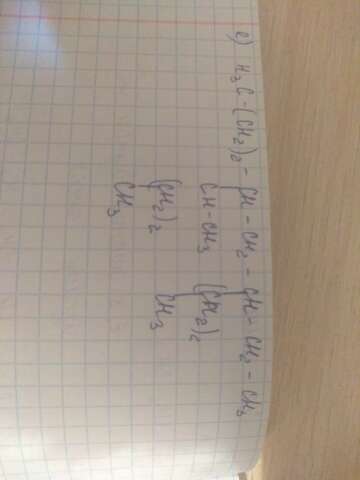 е) H₃C-(CH₂)₂-CH-CH₂-CH-CH₂-CH₃
CH-CH₃ (CH₂)₂
(CH₂)₂ CH₃
CH₃